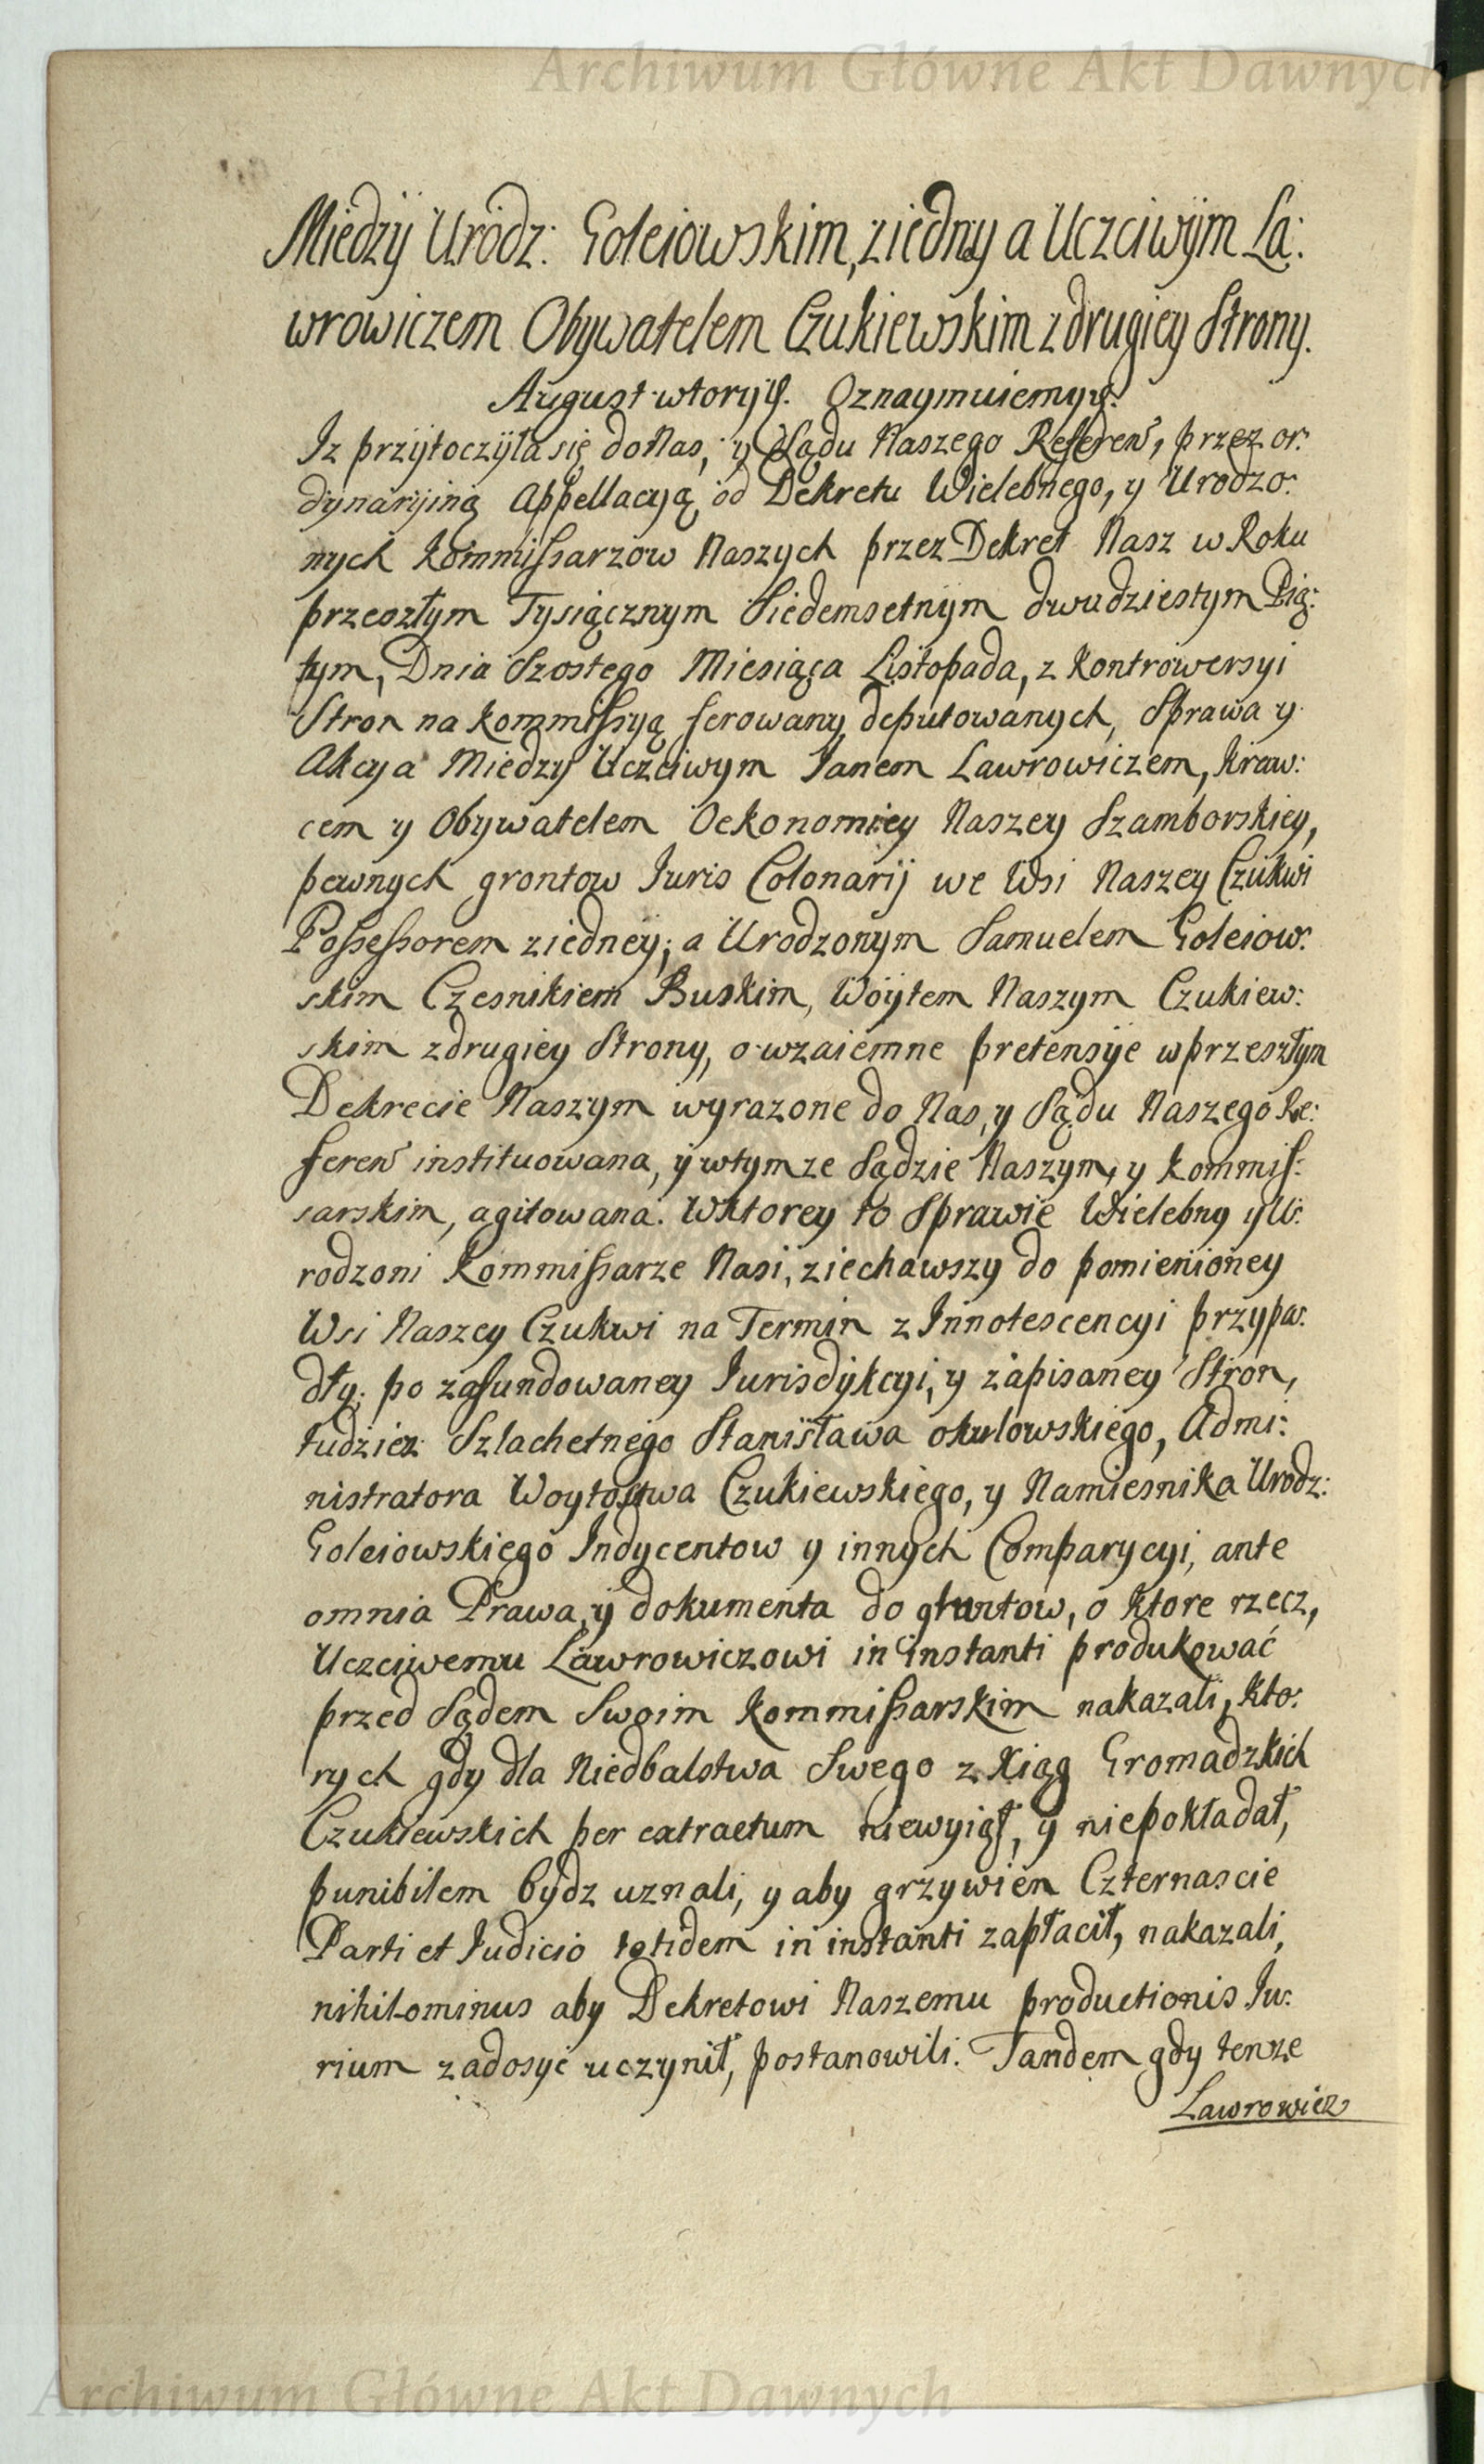 Archiwum Główne Akt Dawnych
Miedzÿ Urodz: Goleiowskim, ziedny a Uczciwÿm La:
wrowiczem Obywatelem Czukiewskim z drugiey Strony.
August wtoryẙ. Oznaymuiemyẙ.
Iz przÿtoczÿła się do Nas, y Sądu Naszego Referen̄, przez or:
dynarÿiną Appellacyą od Dekretu Wielebnego, y Urodzo:
nych Kommissarzow Naszych przez Dekret Nasz w Roku
przeszłym Tysiącznym Siedemsetnÿm dwudziestym Pią:
tym, Dnia Szostego Miesiąca Listopada, z Kontrowersyi
Stron na Kommissyą ferowany deputowanych, Sprawa y
Akcya Miedzy Uczciwym Janem Lawrowiczem, Kraw:
cem y Obywatelem Oekonomiey Naszey Szamborskiey,
pewnych grontow Iuris Colonarij we Wsi Naszey Czukwi
Possessorem ziedney; a Urodzonym Samuelem Goleiow:
skim Czesnikiem Buskim, Woÿtem Naszym Czukiew:
skim zdrugiey Strony, o wzaiemne pretensÿe wprzeszłym
Dekrecie Naszym wyrazone do Nas, y Sądu Naszego Re:
feren̄ instituowana, ÿ wtymze Sądzie Naszym, y Kommis:
sarskim, agitowana. Wktorey to Sprawie Wielebny y U:
rodzoni Kommissarze Nasi, ziechawszy do pomienioney
Wsi Naszey Czukwi na Termin z Innotescencyi przypa:
dły, po zafundowaney Jurisdÿkcyi, y zapisaney Stron,
tudziez Szlachetnego Stanisława Okulowskiego, Admi:
nistratora Woytostwa Czukiewskiego, y Namiesnika Urodz:
Goleiowskiego Indycentow y innych Comparycyi, ante
omnia Prawa, y dokumenta do gruntow, o ktore rzecz,
Uczciwemu Lawrowiczowi in instanti produkować
przed Sądem Swoim Kommissarskim nakazali, kto:
rych gdy dla Niedbalstwa Swego z Xiąg Gromadzkich
Czukiewskich per extractum niewyiął, y niepokładał,
punibilem bydz uznali, y aby grzywien Czternascie
Parti et Judicio totidem in instanti zapłacił, nakazali,
nihilominus aby Dekretowi Naszemu productionis Iu:
rium zadosyć uczynił, postanowili. Tandem gdy tenze
Lawrowicz
Archiwum Główne Akt Dawnych